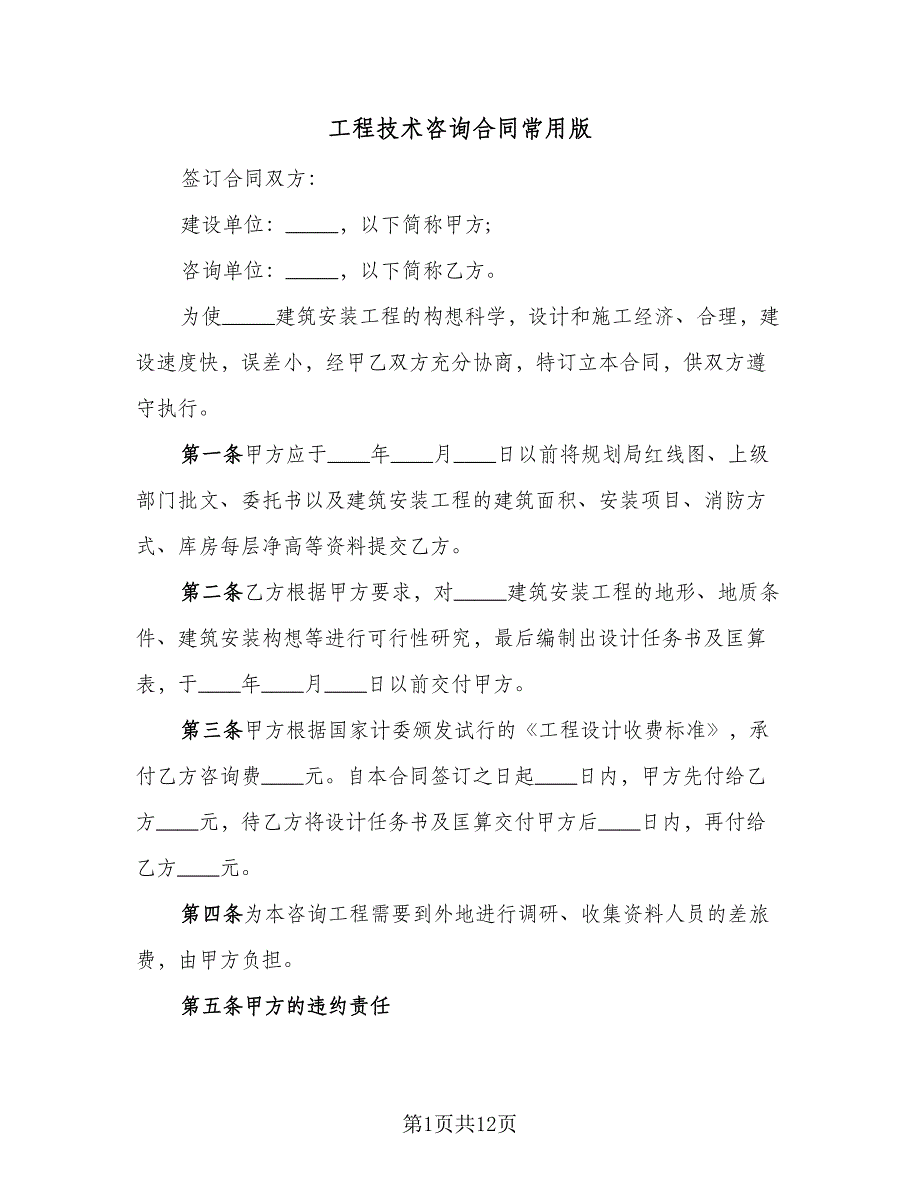 工程技术咨询合同常用版
签订合同双方：
建设单位：_____，以下简称甲方;
咨询单位：_____，以下简称乙方。
为使_____建筑安装工程的构想科学，设计和施工经济、合理，建
设速度快，误差小，经甲乙双方充分协商，特订立本合同，供双方遵
守执行。
第一条甲方应于____年____月____日以前将规划局红线图、上级
部门批文、委托书以及建筑安装工程的建筑面积、安装项目、消防方
式、库房每层净高等资料提交乙方。
第二条乙方根据甲方要求，对_____建筑安装工程的地形、地质条
件、建筑安装构想等进行可行性研究，最后编制出设计任务书及匡算
表，于____年____月____日以前交付甲方。
第三条甲方根据国家计委颁发试行的《工程设计收费标准》，承
付乙方咨询费____元。自本合同签订之日起____日内，甲方先付给乙
方____元，待乙方将设计任务书及匡算交付甲方后____日内，再付给
乙方____元。
第四条为本咨询工程需要到外地进行调研、收集资料人员的差旅
费，由甲方负担。
第五条甲方的违约责任
第1页共12页